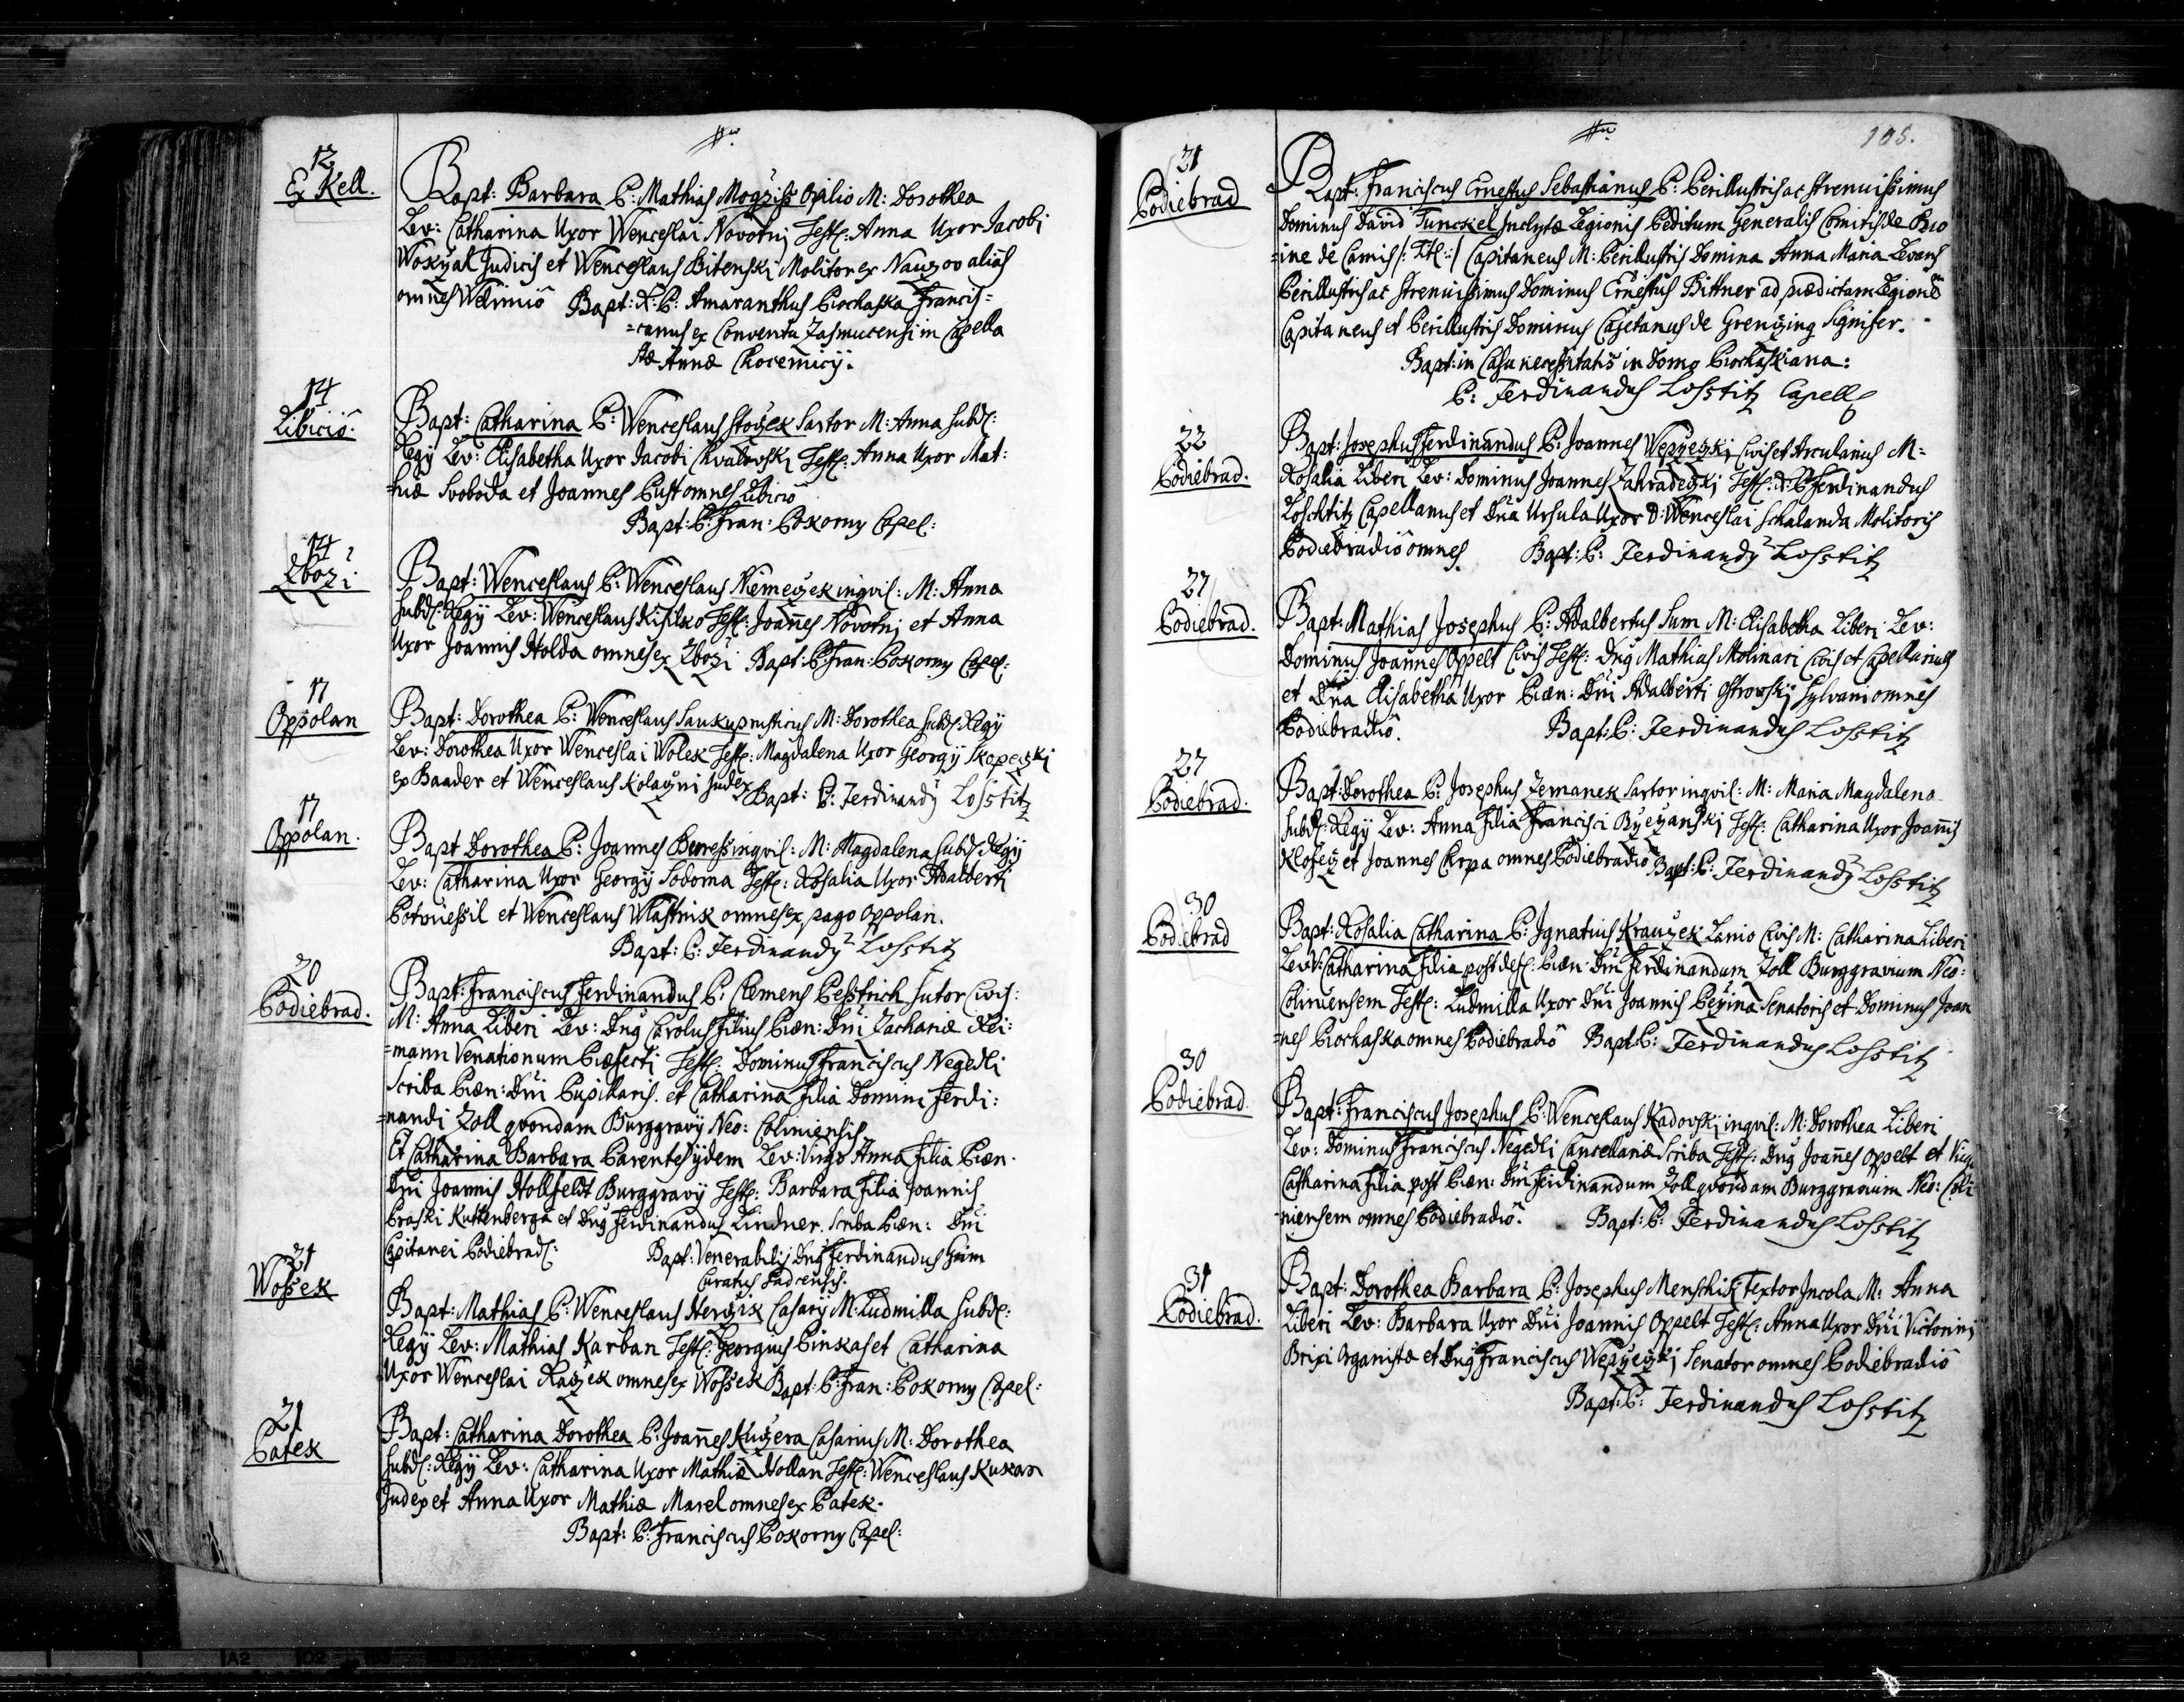 12
Ex Kell.
Bapt: Barbara P: Mathias Mogziss Opilio M: Dorothea
Lev: Catharina Uxor Wenceslai Novotnj Test: Anna Uxor Jacobi
Wokzal Judicis et Wenceslaus Bitenski Molitor ex Nauzov aliàs
omnes Welimiô Bapt: R: P: Amaranthus Prochaska Francis=
=canus ex Conventu Zasmucensi in Capella
Stæ Annæ Chocemicij.
14
Libiciô.
Bapt: Catharina P: Wenceslaus Stozek Sartor M: Anna Subd:
Regy Lev: Elisabetha Uxor Jacobi Chvalovski Test: Anna Uxor Mat:
=hiæ Svoboda et Joannes Pust omnes Libiciô
Bapt: P: Fran: Pokorny Capel:
14
Zbozi
Bapt: Wenceslaus P: Wenceslaus Nemeczek inqvil: M: Anna
Subd: Regÿ Lev: Wenceslaus Kisilko Test: Joannes Novotnj et Anna
Uxor Joannis Holda omnes ex Zbozi Bapt: P: Fran: Pokorny Capel:
17
Oppolan
Bapt: Dorothea P: Wenceslaus Saukup rusticus M: Dorothea Subd: Regÿ
Lev: Dorothea Uxor Wenceslai Wolek Test: Magdalena Uxor Georgÿ Skopeczki
ex Baader et Wenceslaus Kolaczni Judex Bapt: P: Ferdinandy Losstitz
17
Oppolan.
Bapt Dorothea P: Joannes Buress inqvil: M: Magdalena Subd: Regÿ
Lev: Catharina Uxor Georgÿ Sodoma Test: Rosalia Uxor Adalberti
Potvuessil et Wenceslaus Wlastnik omnes ex pago Oppolan.
Bapt: P: Ferdinandy Losstitz
20
Podiebrad.
Bapt: Franciscus Ferdinandus P: Clemens Pesstrich Sutor Civis:
M: Anna Liberi Lev: Dng Carolus Filius Præn: Dni Zachariæ Rei:
=mann Venationum Præfecti Test: Dominus Franciscus Negedli
Scriba Præn: Dni Pupillaris. et Catharina Filia Domini Ferdi:
=nandi Zoll qvondam Burggravÿ Neo: Coliniensis
Et Catharina Barbara Parentes ÿdem Lev: Virgo Anna Filia Præn.
Dni Joannis Hollfeldt Burggravÿ Test: Barbara Filia Joannis
Praski Kuttenbergâ et Dng Ferdinandus Lindner. Scriba Præn: Dni
Capitanei Podiebrad:
Bapt: Venerabilis Dng Ferdinandus Haim
Curatus Sadcensis.
21
Wossek
Bapt: Mathias P: Wenceslaus Herzik Casarÿ M: Ludmilla Subd:
Regÿ Lev: Mathias Karban Test: Georgius Pinkas et Catharina
Uxor Wenceslai Raczek omnes ex Wossek Bapt: P: Fran: Pokorny Capel:
21
Patek
Bapt: Catharina Dorothea P: Joannes Kuczera Casarius M: Dorothea
Subd: Regÿ Lev: Catharina Uxor Mathiæ Hollan Test: Wenceslaus Kukan
Judex et Anna Uxor Mathiæ Marel omnes ex Patek.
Bapt: P: Franciscus Pokorny Capel:
105.
21
Podiebrad
Bapt: Franciscus Ernestus Sebastianus P: Perillustris ac Strenuissimus
Dominus David Tunckel Inclytæ Legionis Peditum Generalis Comitis de Bro
=ine de Camis /: Titl: :/ Capitaneus M: Perillustris Domina Anna Maria Levans
Perillustris ac Strenuissimus Dominus Ernestus Bittner ad prædictam Legionê
Capitaneus et Perillustris Dominus Cajetanus de Grenzing Signifer.
Bapt: in Casu necessitatis in Domo Prochaskiana:
P: Ferdinandus Losstitz Capell
22
Podiebrad.
Bapt: Josephus Ferdinandus P: Joannes Wepÿezki Civis et Arcularius M=
Rosalia Liberi Lev: Dominus Joannes Zahradeczkj Test: R: P: Ferdinandus
Loschtitz Capellanus et Dna Ursula Uxor D: Wenceslai Schalanda Molitoris
Podiebradiô omnes. Bapt: P: Ferdinandy Losstitz
27
Podiebrad.
Bapt: Mathias Josephus P: Adalbertus Sum M: Elisabetha Liberi Lev:
Dominus Joannes Oppelt Civis Test: Dng Mathias Molinari Civis et Capellarius
et Dna Elisabetha Uxor Præn: Dni Adalberti Ostrovskÿ Sylvani omnes
Podiebradiô. Bapt: P: Ferdinandus Losstitz
27
Podiebrad.
Bapt: Dorothea P: Josephus Zemanek Sartor inqvil: M: Maria Magdalena
Subd: Regÿ Lev: Anna Filia Francisci Rzezanskj Test: Catharina Uxor Joannis
Klofez et Joannes Chrpa omnes Podiebradiô Bapt: P: Ferdinandy Losstitz
30
Podiebrad
Bapt: Rosalia Catharina P: Ignatius Krauzek Lanio Civis M: Catharina Liberi
Lev: V: Catharina Filia post def: Præn: Dni Ferdinandum Zoll Burggravium Neo:
Coliniensem Test: Ludmilla Uxor Dni Joannis Pezina Senatoris et Dominus Joan
=nes Prochaska omnes Podiebradiô Bapt: P: Ferdinandus Losstitz
30
Podiebrad
Bapt: Franciscus Josephus P: Wenceslaus Radovskj inqvil: M: Dorothea Liberi
Lev: Dominus Franciscus Negedli Cancellariæ Scriba Test: Dng Joannes Oppelt et Virgo
Catharina Filia post Præn: Dni Ferdinandum Zoll qvondam Burggravium Neo: Coli
=niensem omnes Podiebradiô. Bapt: P: Ferdinandus Losstitz
31
Podiebrad.
Bapt: Dorothea Barbara P: Josephus Menschik Textor Incola M: Anna
Liberi Lev: Barbara Uxor Dni Joannis Oppelt Test: Anna Uxor Dni Victorini
Brixi Organistæ et Dng Franciscus Wepÿezkj Senator omnes Podiebradiô
Bapt: P: Ferdinandus Losstitz